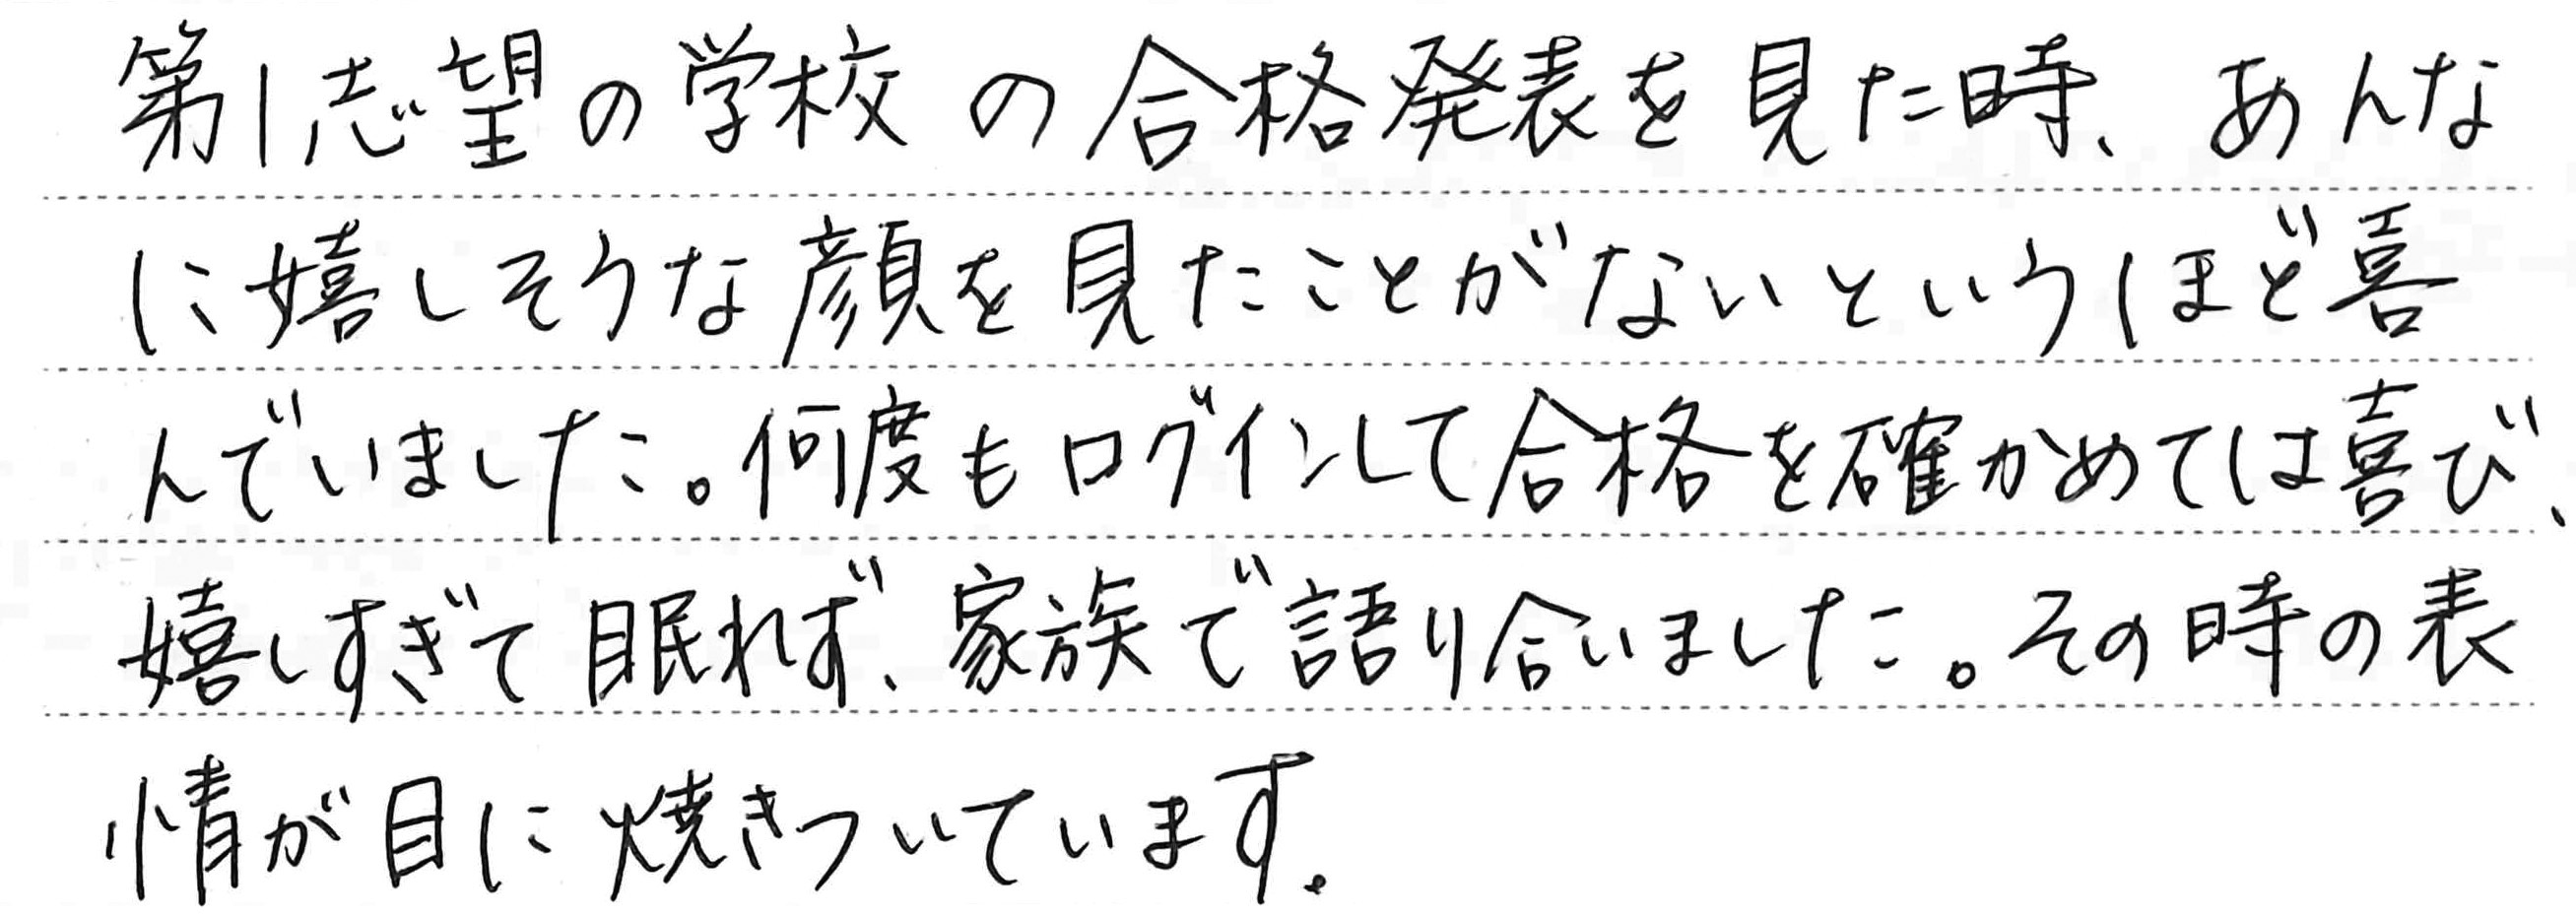 第1志望の学校の合格発表を見た時、あんな
に嬉しそうな顔を見たことがないというほど喜
んでいました。何度もログインして合格を確かめては喜び、
嬉しすぎて眠れず、家族で語り合いました。その時の表
情が目に焼きついています。